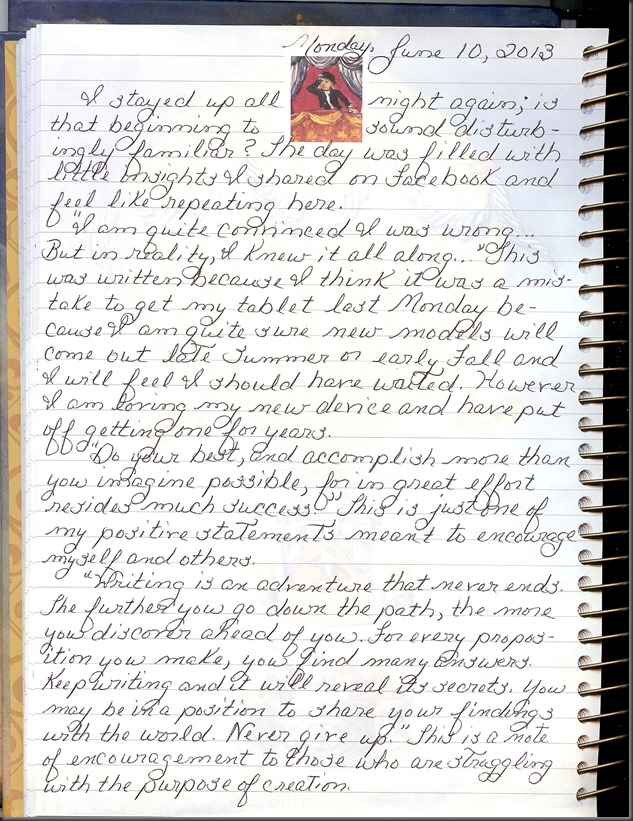 Monday, June 10, 2013
I stayed up all night again; is
that beginning to sound disturb-
ingly familiar? The day was filled with
little insights I shared on Facebook and
feel like repeating here.
"I am quite convinced I was wrong...
But in reality, I knew it all along..." This
was written because I think it was a mis-
take to get my tablet last Monday be-
cause I am quite sure new models will
come out late Summer or early Fall and
I will feel I should have waited. However
I am loving my new device and have put
off getting one for years.
"Do your best, and accomplish more than
you imagine possible, for in great effort
resides much success." This is just one of
my positive statements meant to encourage
myself and others.
"Writing is an adventure that never ends.
The further you go down the path, the more
you discover ahead of you. For every propos-
ition you make, you find many answers.
Keep writing and it will reveal its secrets. You
may be in a position to share your findings
with the world. Never give up." This is a note
of encouragement to those who are struggling
with the purpose of creation.